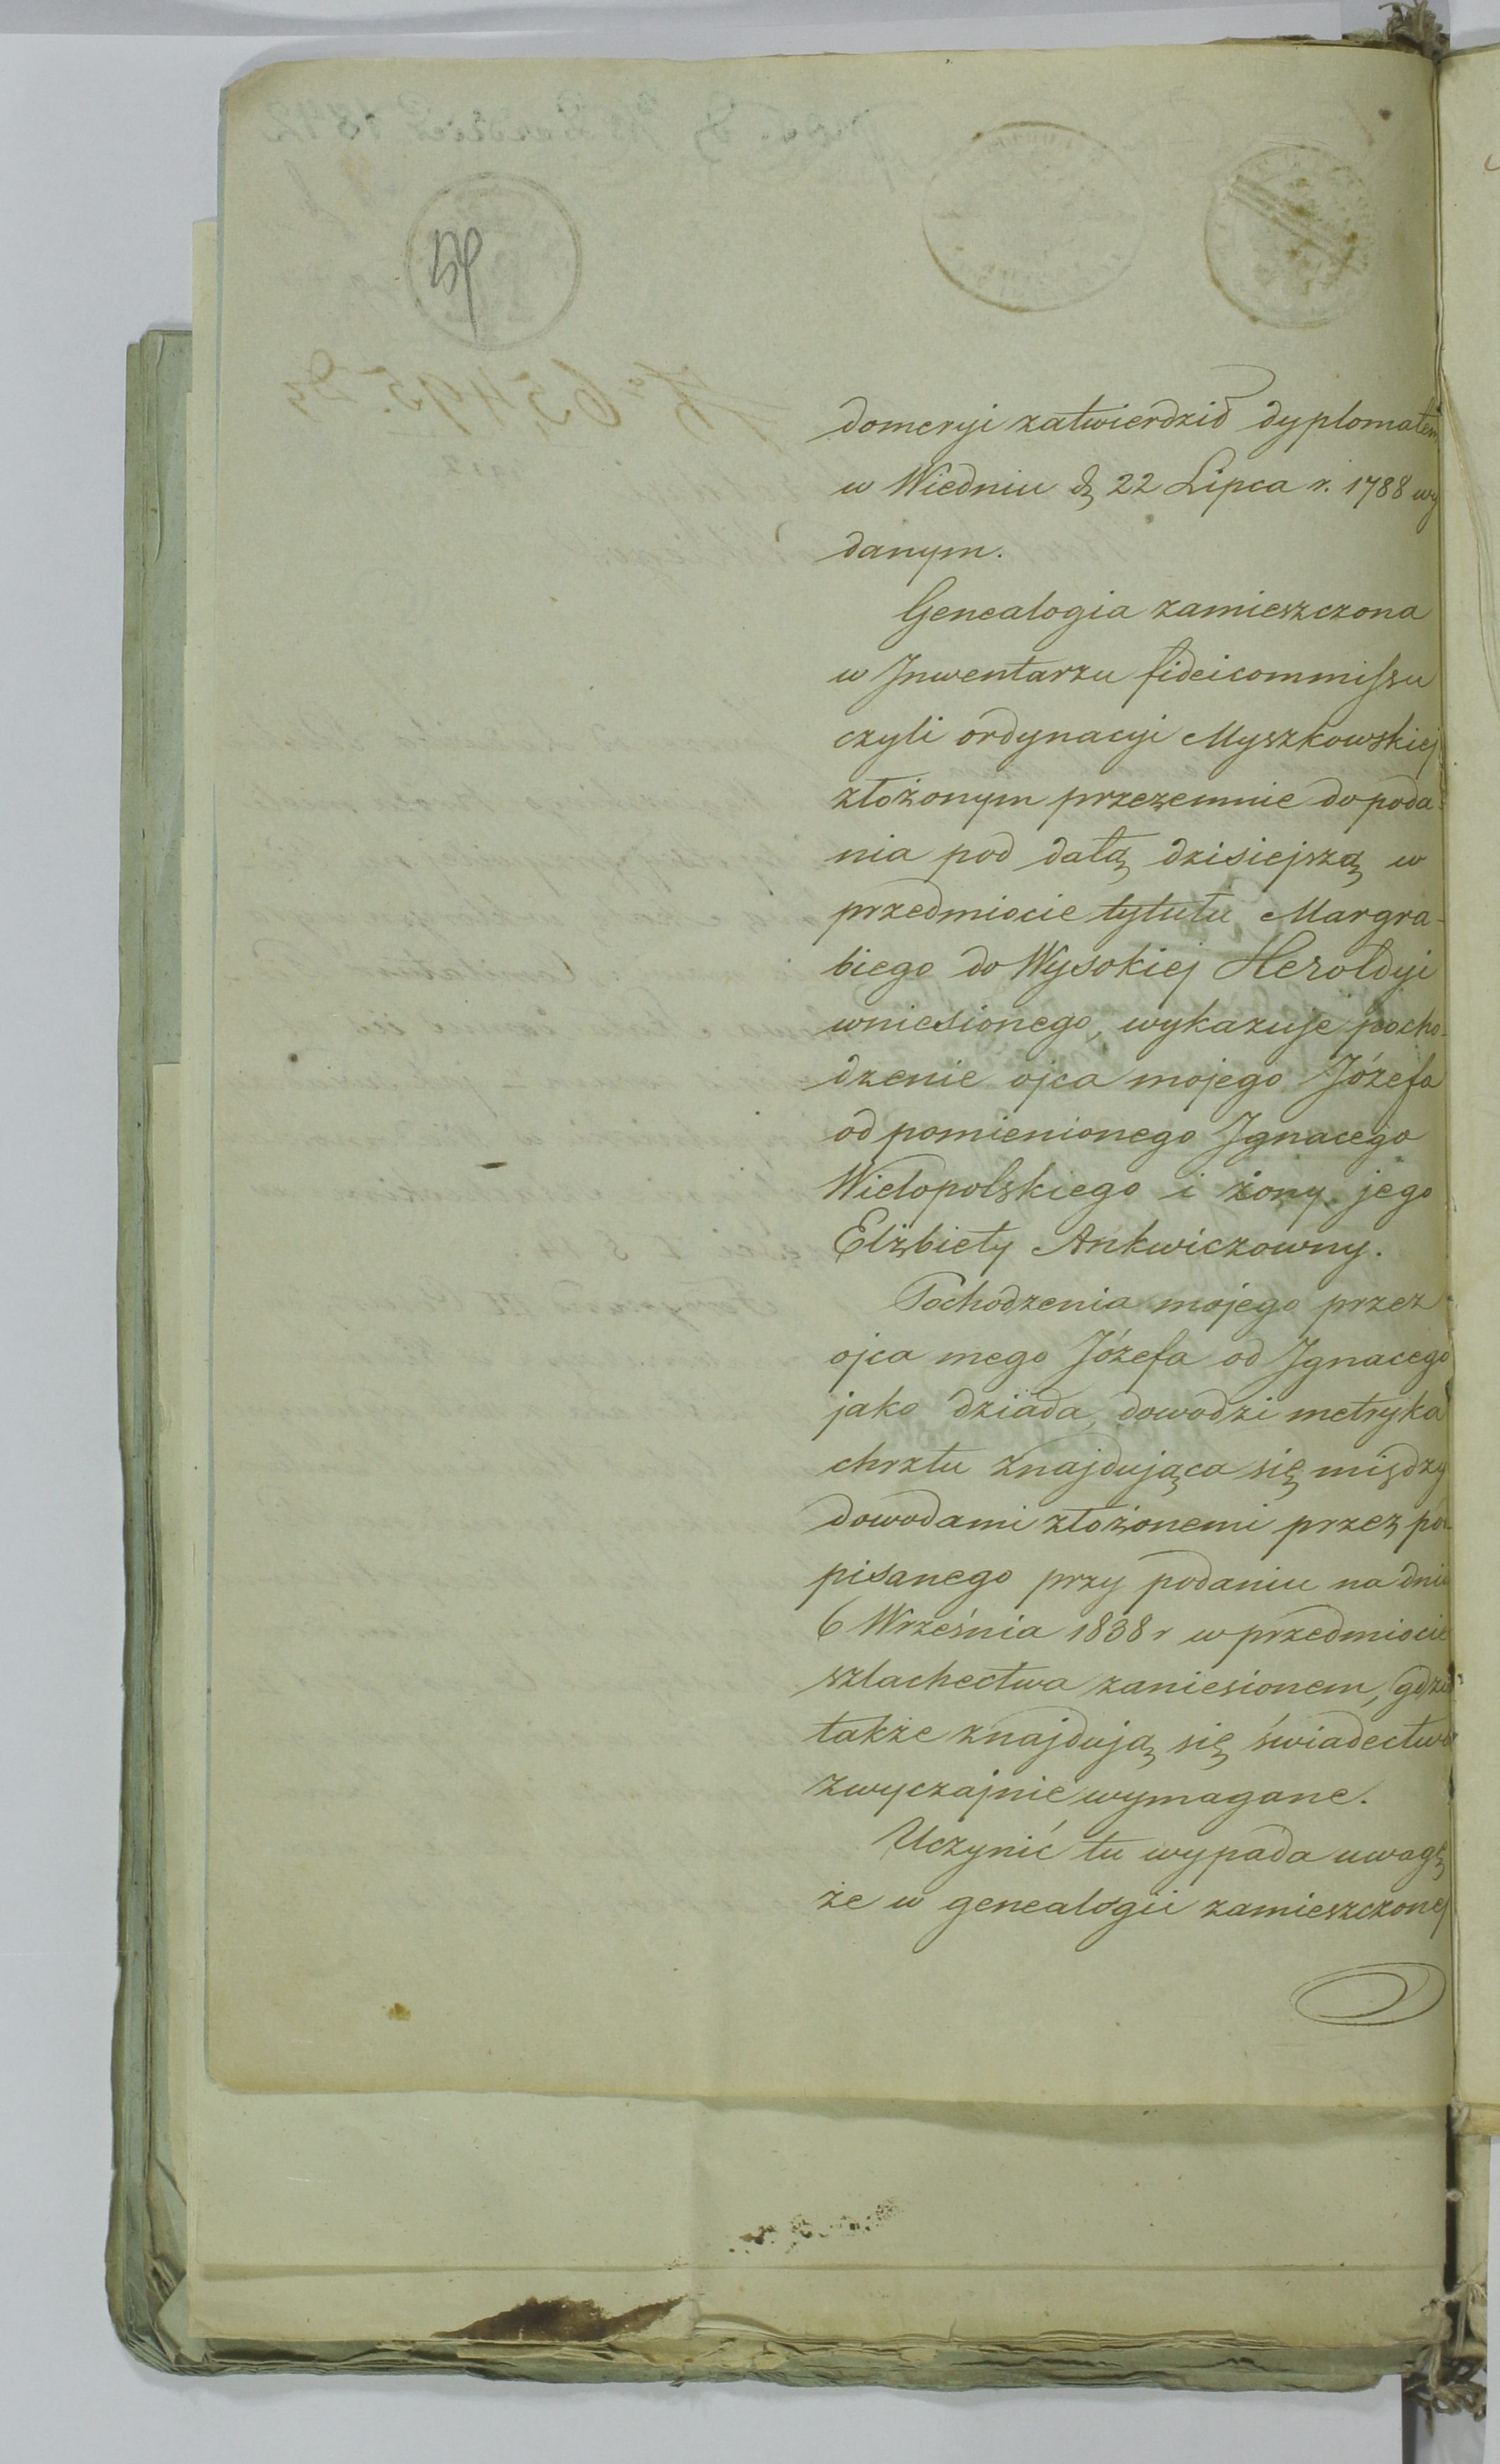 domeryi zatwierdził dyplomatem
w Wiedniu d. 22 Lipca r. 1788 wy
danym.
Genealogia zamieszczona
w Inwentarzu fideicommissu
czyli ordynacyi Myszkowskiej
złożonym przezemnie do poda-
nia pod datą dzisiejszą w
przedmiocie tytułu Margra-
biego do Wysokiej Heroldyi
wniesionego, wykazuje pocho-
dzenie ojca mojego Józefa
od pomienionego Ignacego
Wielopolskiego i żony jego
Elżbiety Ankwiczowny.
Pochodzenia mojego przez
ojca mego Józefa od Ignacego
jako dziada, dowodzi metryka
chrztu znajdująca się między
dowodami złożonemi przez pod
pisanego przy podaniu na dniu
6 Września 1838 r w przedmiocie
szlachectwa zaniesionem, gdzie
także znajdują się świadectwa
zwyczajnie wymagane.
Uczynić tu wypada uwagę
że w genealogii zamieszczonej